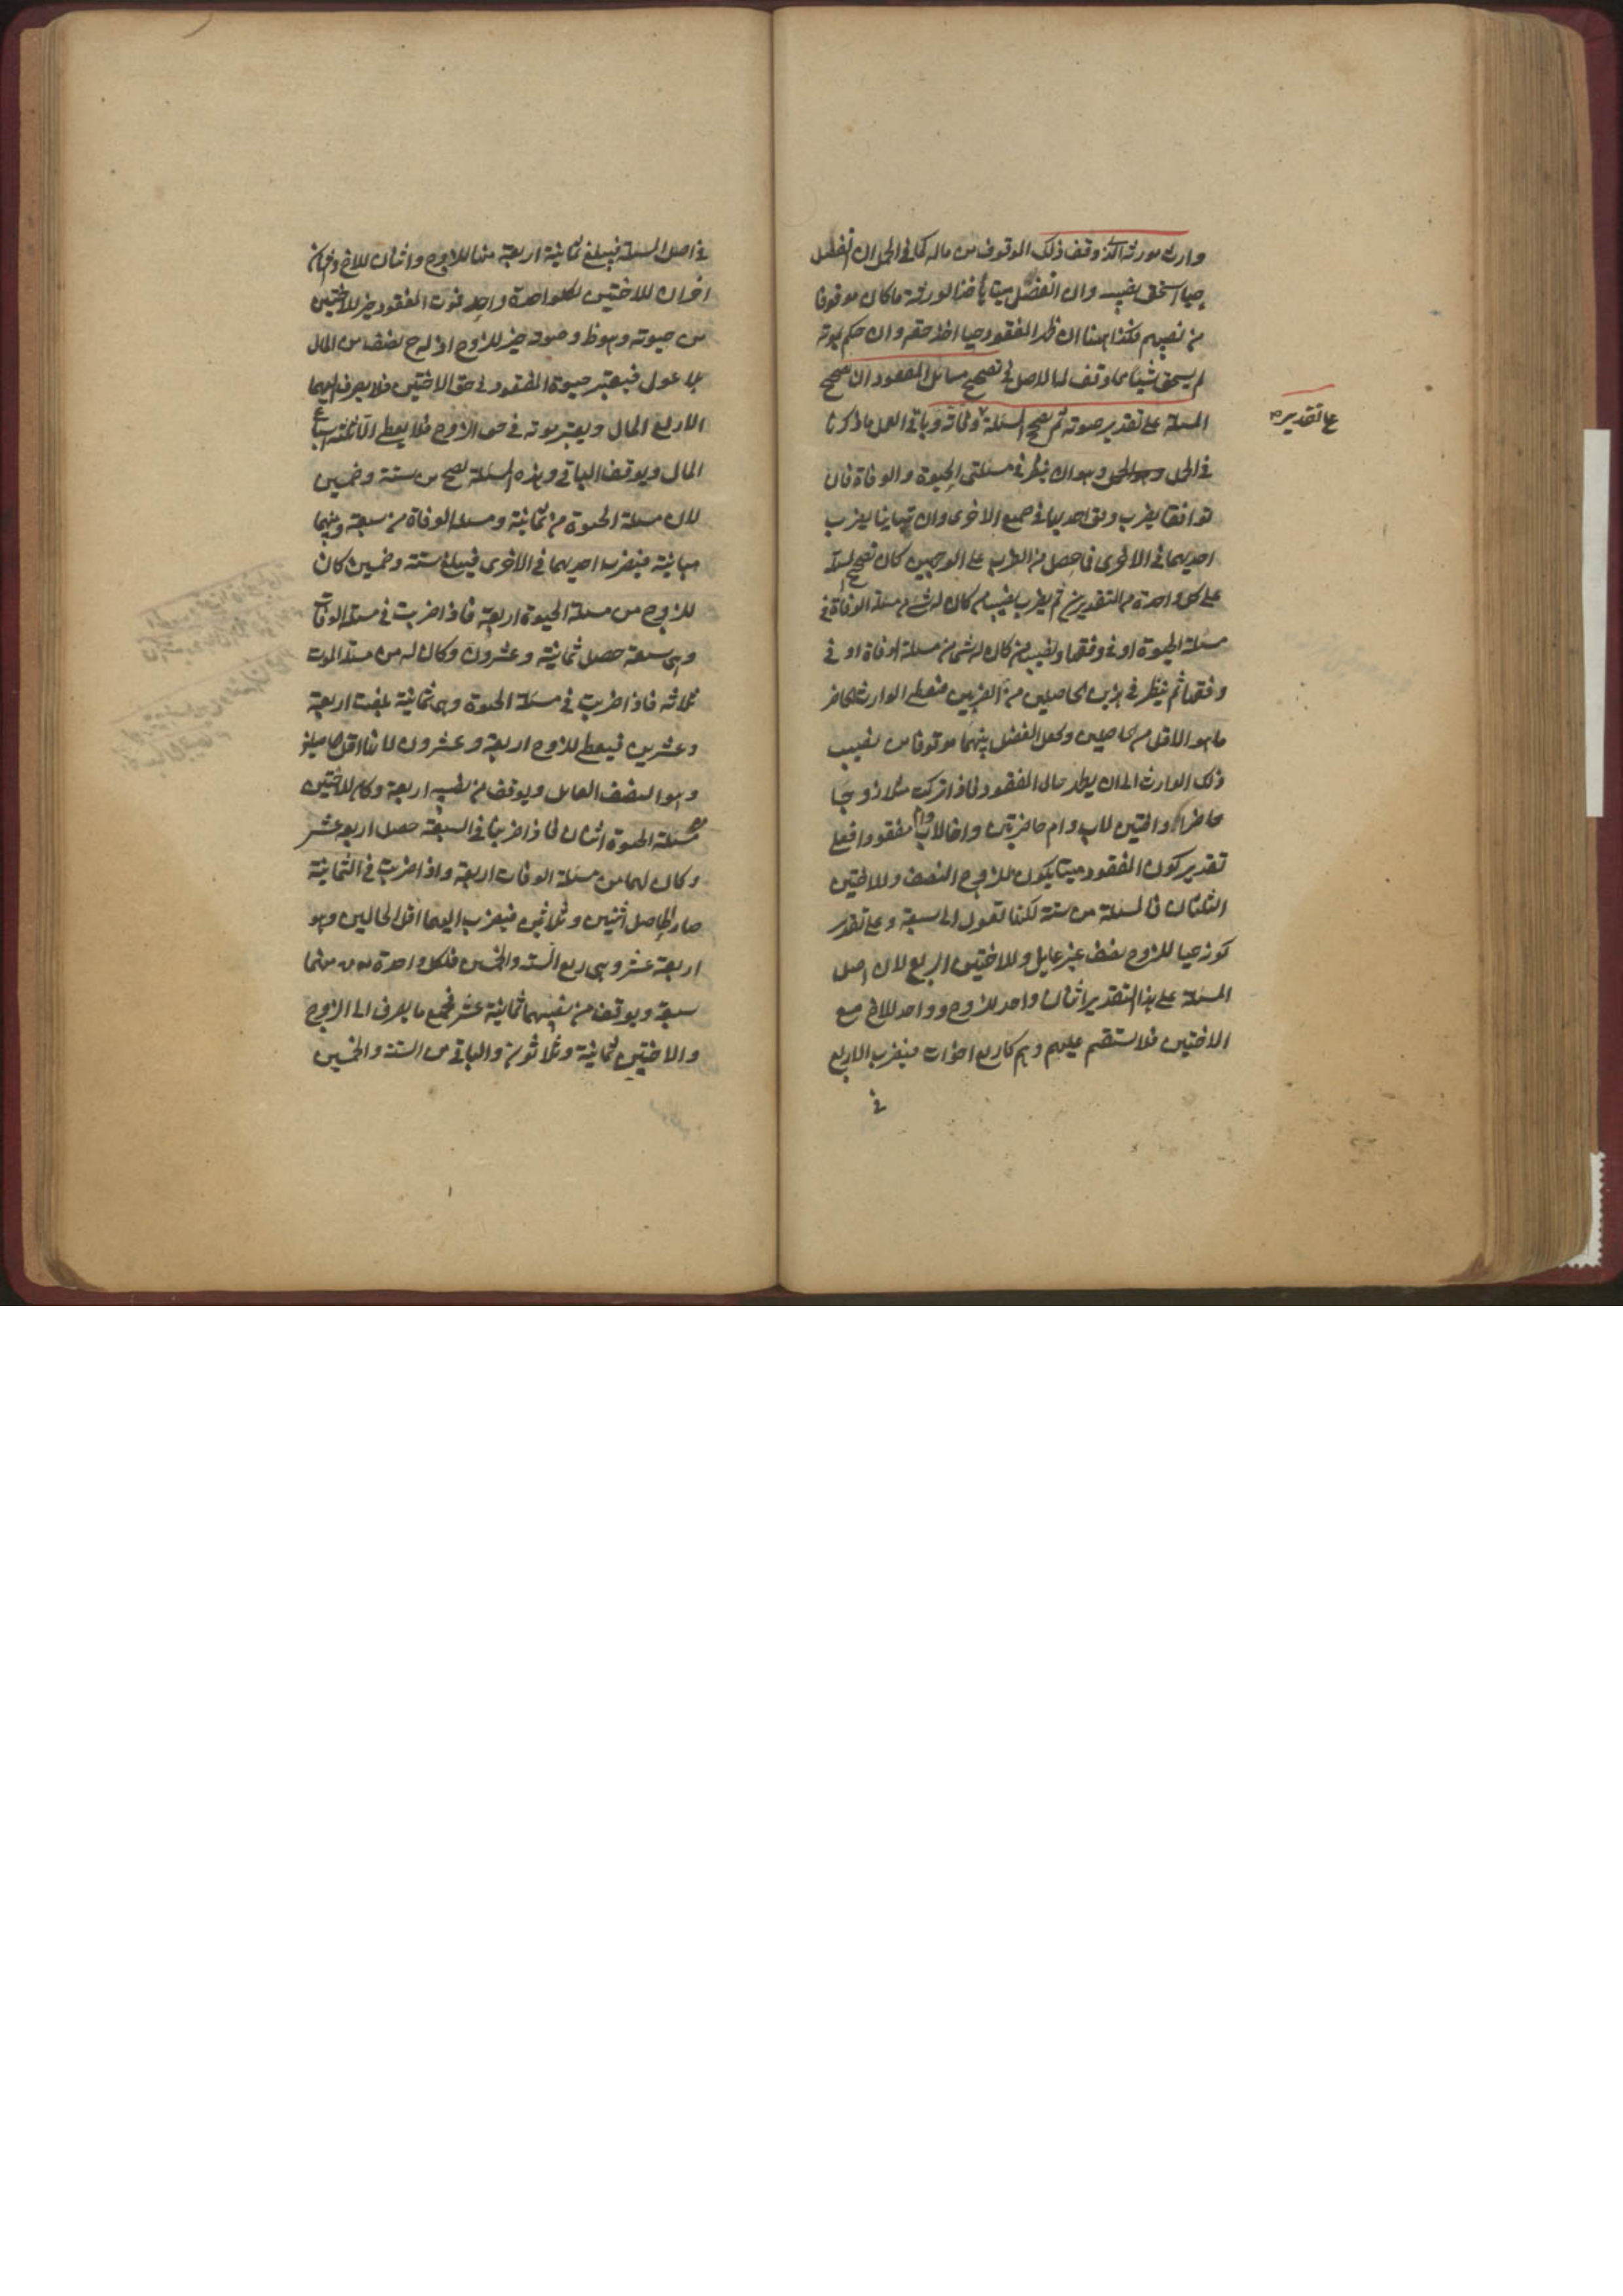 وارث مورثه الذي وقف ذلك الموقوف من ماله كما في الحمل ان انفصل
حيا استحق نصيبه وان انفصل ميتا يأخذ الورثة ما كان موقوفا
من نصيبهم فكذا ههنا ان ظهر المفقود حيا اخذ حقه وان حكم بموته
لم يستحق شيئا مما وقف له الاصل في تصحيح مسائل المفقود ان تصحح
المسئلة على تقدير حيوته ثم تصحح المسئلة وفاته وباقي العمل ما ذكرنا
على تقدير
في الحمل وهو ان ينظر في مسئلتي الحيوة والوفاة فان
توافقا يضرب وفق احديهما في جميع الاخرى وان تباينا يضرب
احديهما في الاخرى فما حصل من الضرب على الوجهين كان تصحيح المسئلة
على كل واحدة من التقديرين ثم يضرب نصيب من كان له شئ من مسئلة الوفاة في
مسئلة الحيوة او في وفقها ونصيب من كان له شئ من مسئلة الوفاة او في
وفقها ثم ينظر في هذين الحاصلين من الضربين فيعطى الوارث الحاضر
ما هو الاقل من الحاصلين وجعل الفضل بينهما موقوفا من نصيب
ذلك الوارث الى ان يظهر حال المفقود فاذا تركت مثلا زوجا
حاضرا واختين لاب وام حاضرتين واخا لاب وام مفقودا فعلى
تقدير كون المفقود ميتا يكون للزوج النصف وللاختين
الثلثان فالمسئلة من ستة لكنها تعول الى سبعة وعلى تقدير
كونه حيا للزوج نصف غير عايل وللاختين الربع لان اصل
المسئلة على هذا التقدير اثنان واحد للزوج وواحد للاخ مع
الاختين فلا يستقيم عليهم وهم كاربع اخوات فيضرب الاربع
في
في اصل المسئلة فيبلغ ثمانية اربعة منها للزوج واثنان للاخ واثنان
اخران للاختين لكل واحدة واحد فموت المفقود خير للاختين
من حيوته وهو ظ وحيوته خير للزوج اذ له ح نصف من المال
بلا عول فيعتبر حيوة المفقود في حق الاختين فلا يصرف اليهما
الا ربع المال ويعتبر موته في حق الزوج فلا يعطى الا ثلثة اسباع
المال ويوقف الباقي وهذه المسئلة تصح من ستة وخمسين
لان مسئلة الحيوة من ثمانية ومسئلة الوفاة من سبعة وبينهما
مباينة فيضرب احديهما في الاخرى فيبلغ ستة وخمسين كان
للزوج من مسئلة الحيوة اربعة فاذا ضربت في مسئلة الوفاة
وهي سبعة حصل ثمانية وعشرون وكان له من مسئلة الموت
ثلاثة فاذا ضربت في مسئلة الحيوة وهي ثمانية بلغت اربعة
وعشرين فيعطى للزوج اربعة وعشرون لانها اقل
وهو النصف العايل ويوقف من نصيبه اربعة وكان للاختين
من مسئلة الحيوة اثنان فاذا ضربتا في السبعة حصل اربعة عشر
وكان لهما من مسئلة الوفات اربعة واذا ضربت في الثمانية
صار الحاصل اثنين وثلاثين فيصرف اليهما اقل الحالين وهو
اربعة عشر وهي ربع الستة والخمسين فلكل واحدة منهما
سبعة ويوقف من نصيبهما ثمانية عشر فجميع ما يصرف الى الزوج
والاختين ثمانية وثلاثون والباقي من الستة والخمسين